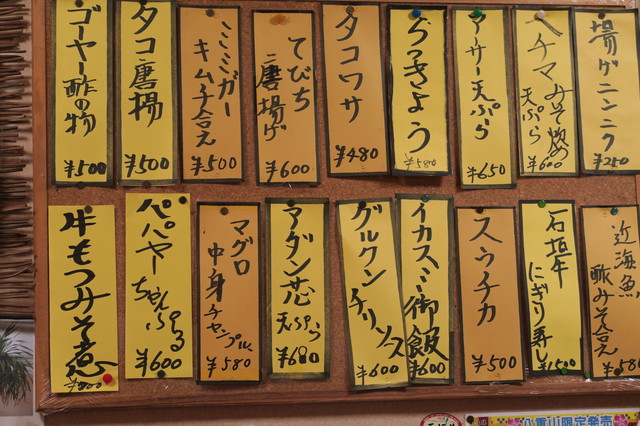 揚げニンニク
¥250
ヘチマみそ炒め
天ぷら
¥600
アサー天ぷら
¥650
らっきょう
¥580
タコワサ
¥480
てびち
唐揚げ
¥600
ミミガー
キムチ合え
¥500
タコ唐揚
¥500
ゴーヤー酢の物
¥500
近海魚
酢みそ合え
¥580
石垣牛
にぎり寿し
¥1500
スウチカ
¥500
イカスミ御飯
¥600
グルクン
チリソース
¥600
アダン芯
天ぷら
¥680
マグロ
中身チャンプル
¥580
パパヤー
ちゃんぷる
¥600
牛もつみそ煮
八重山限定発売